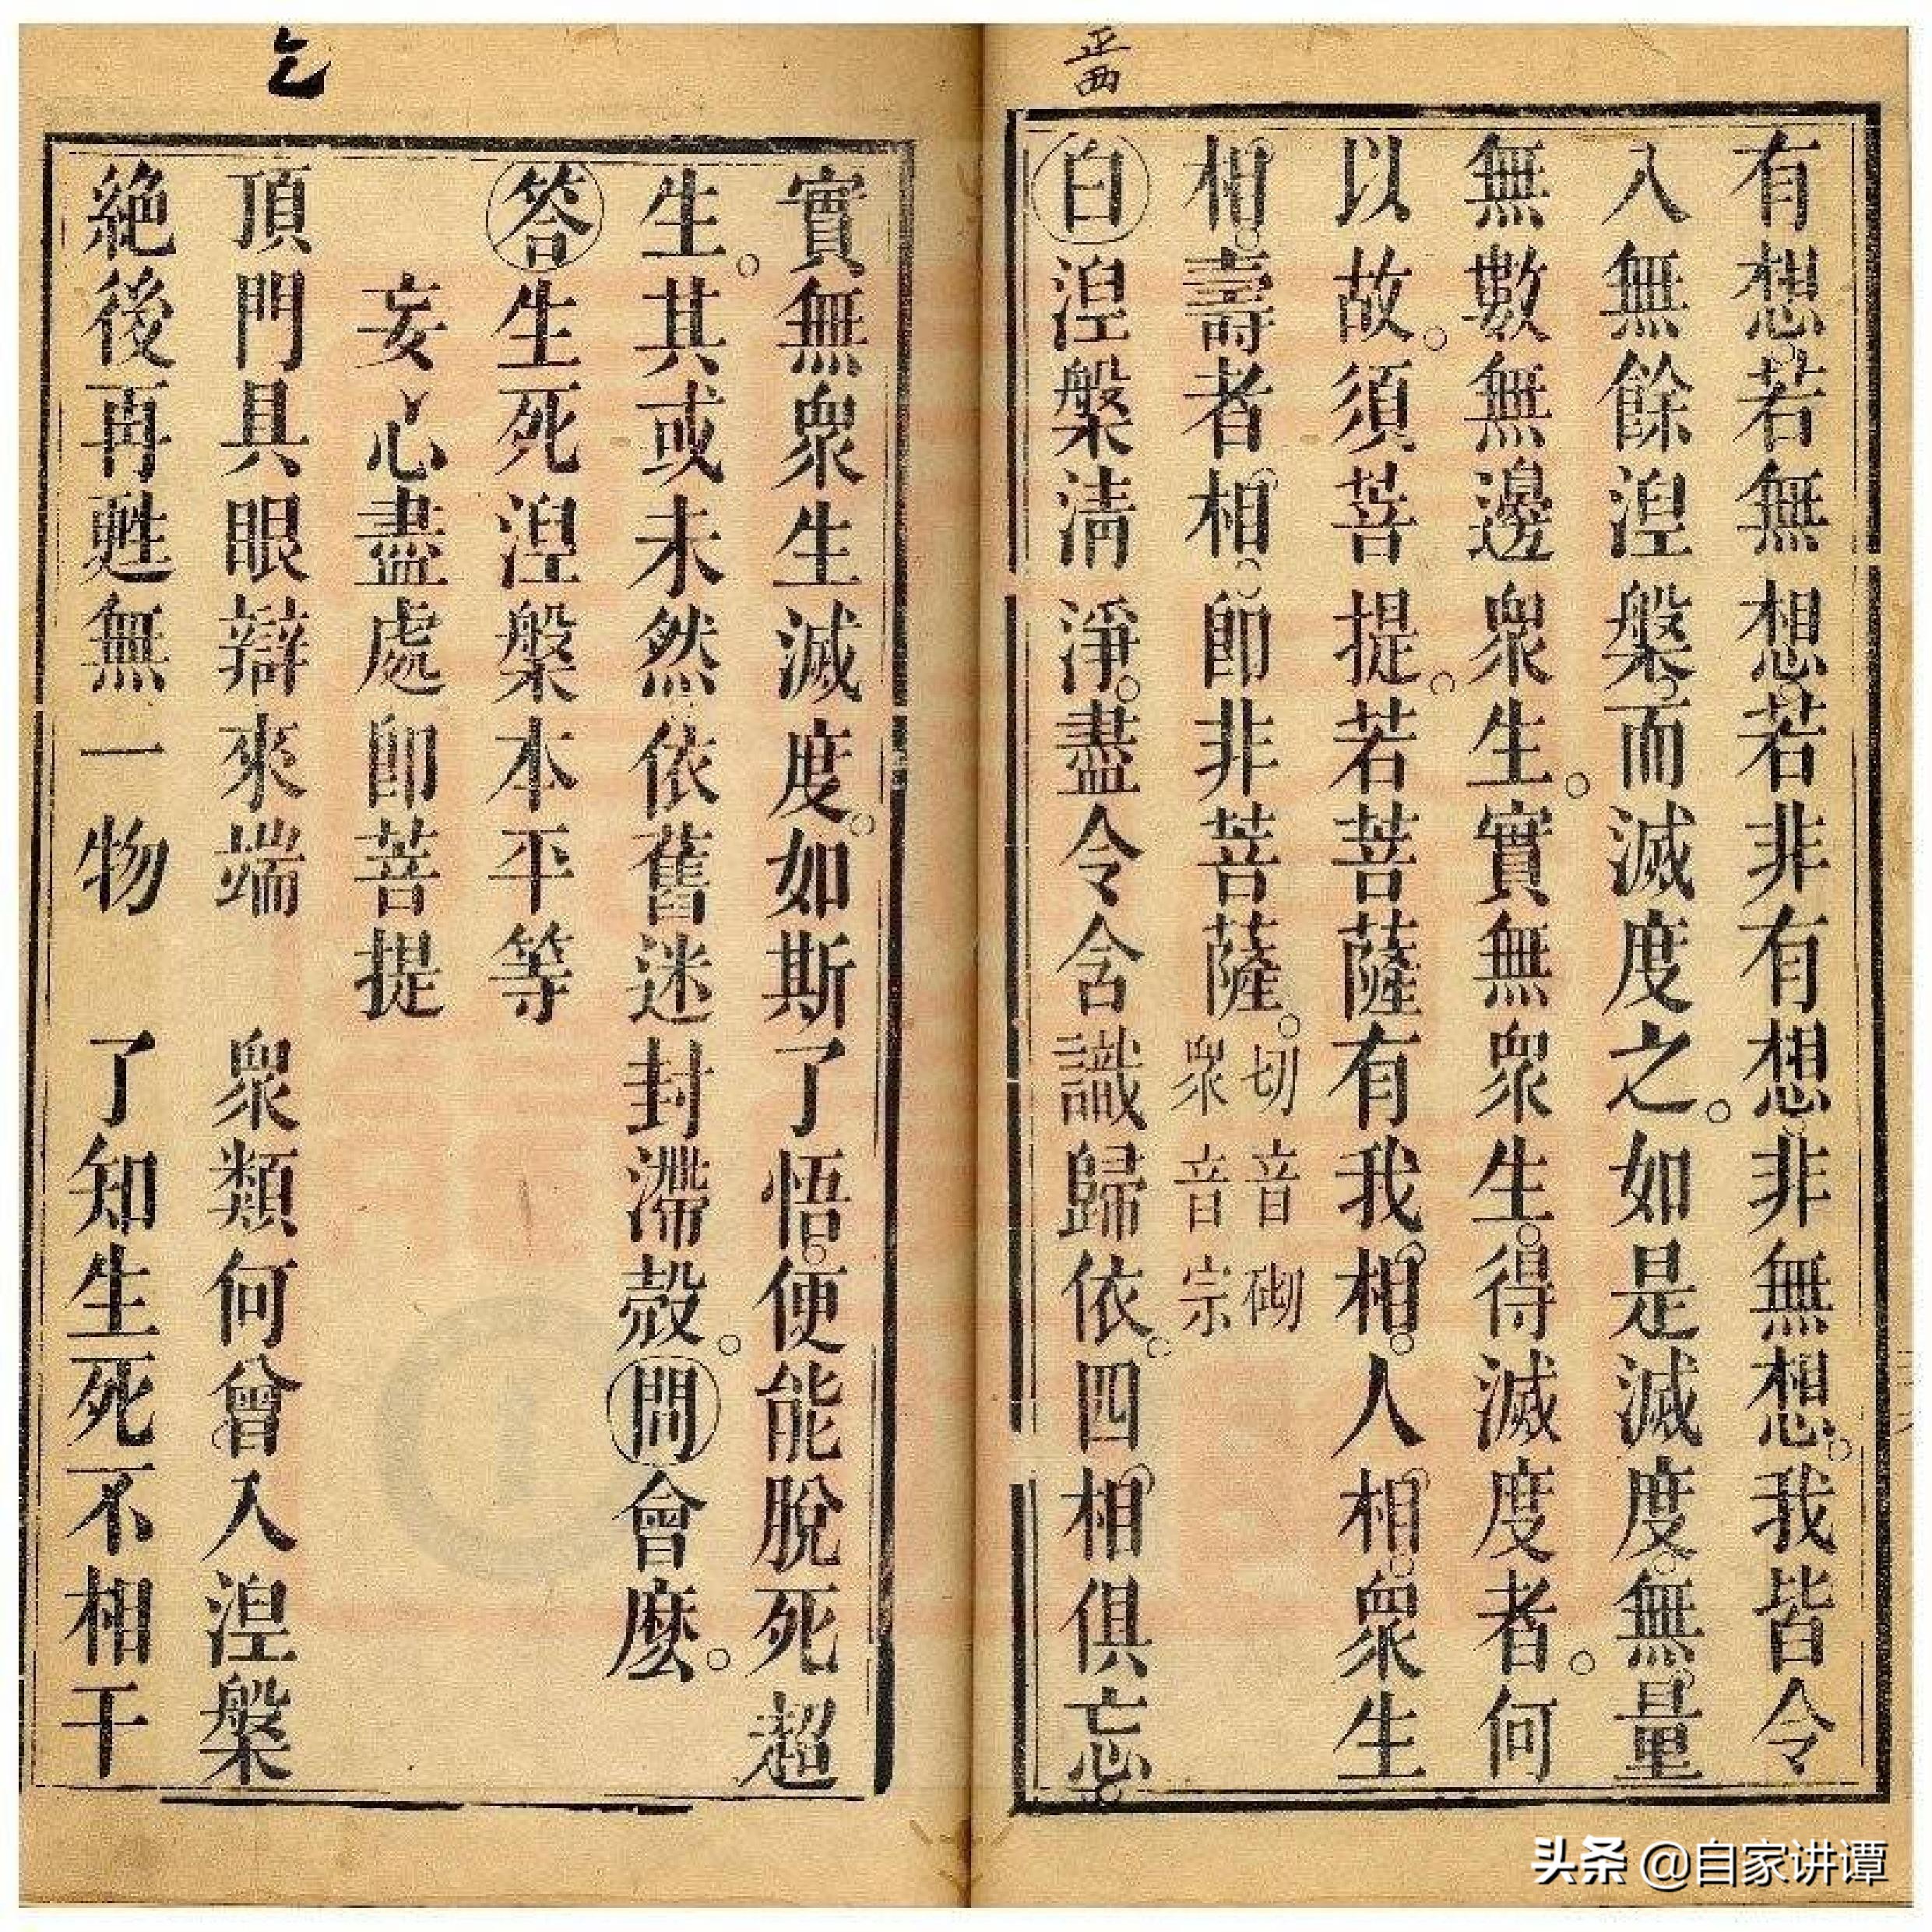 正西
有想若無想若非有想非無想我皆令
入無餘湼槃而滅度之如是滅度無量
無數無邊眾生實無眾生得滅度者何
以故須菩提若菩薩有我相人相眾生
相壽者相卽非菩薩
切音砌
眾音宗
白湼槃清淨盡令含識歸依四相俱忘
實無眾生滅度如斯了悟便能脫死超
生其或未然依舊迷封滯殼問會麽
答生死湼槃本平等
妄心盡處卽菩提
頂門具眼辯來端 眾類何曾入湼槃
絕後再甦無一物 了知生死不相干
头条 @自家讲谭